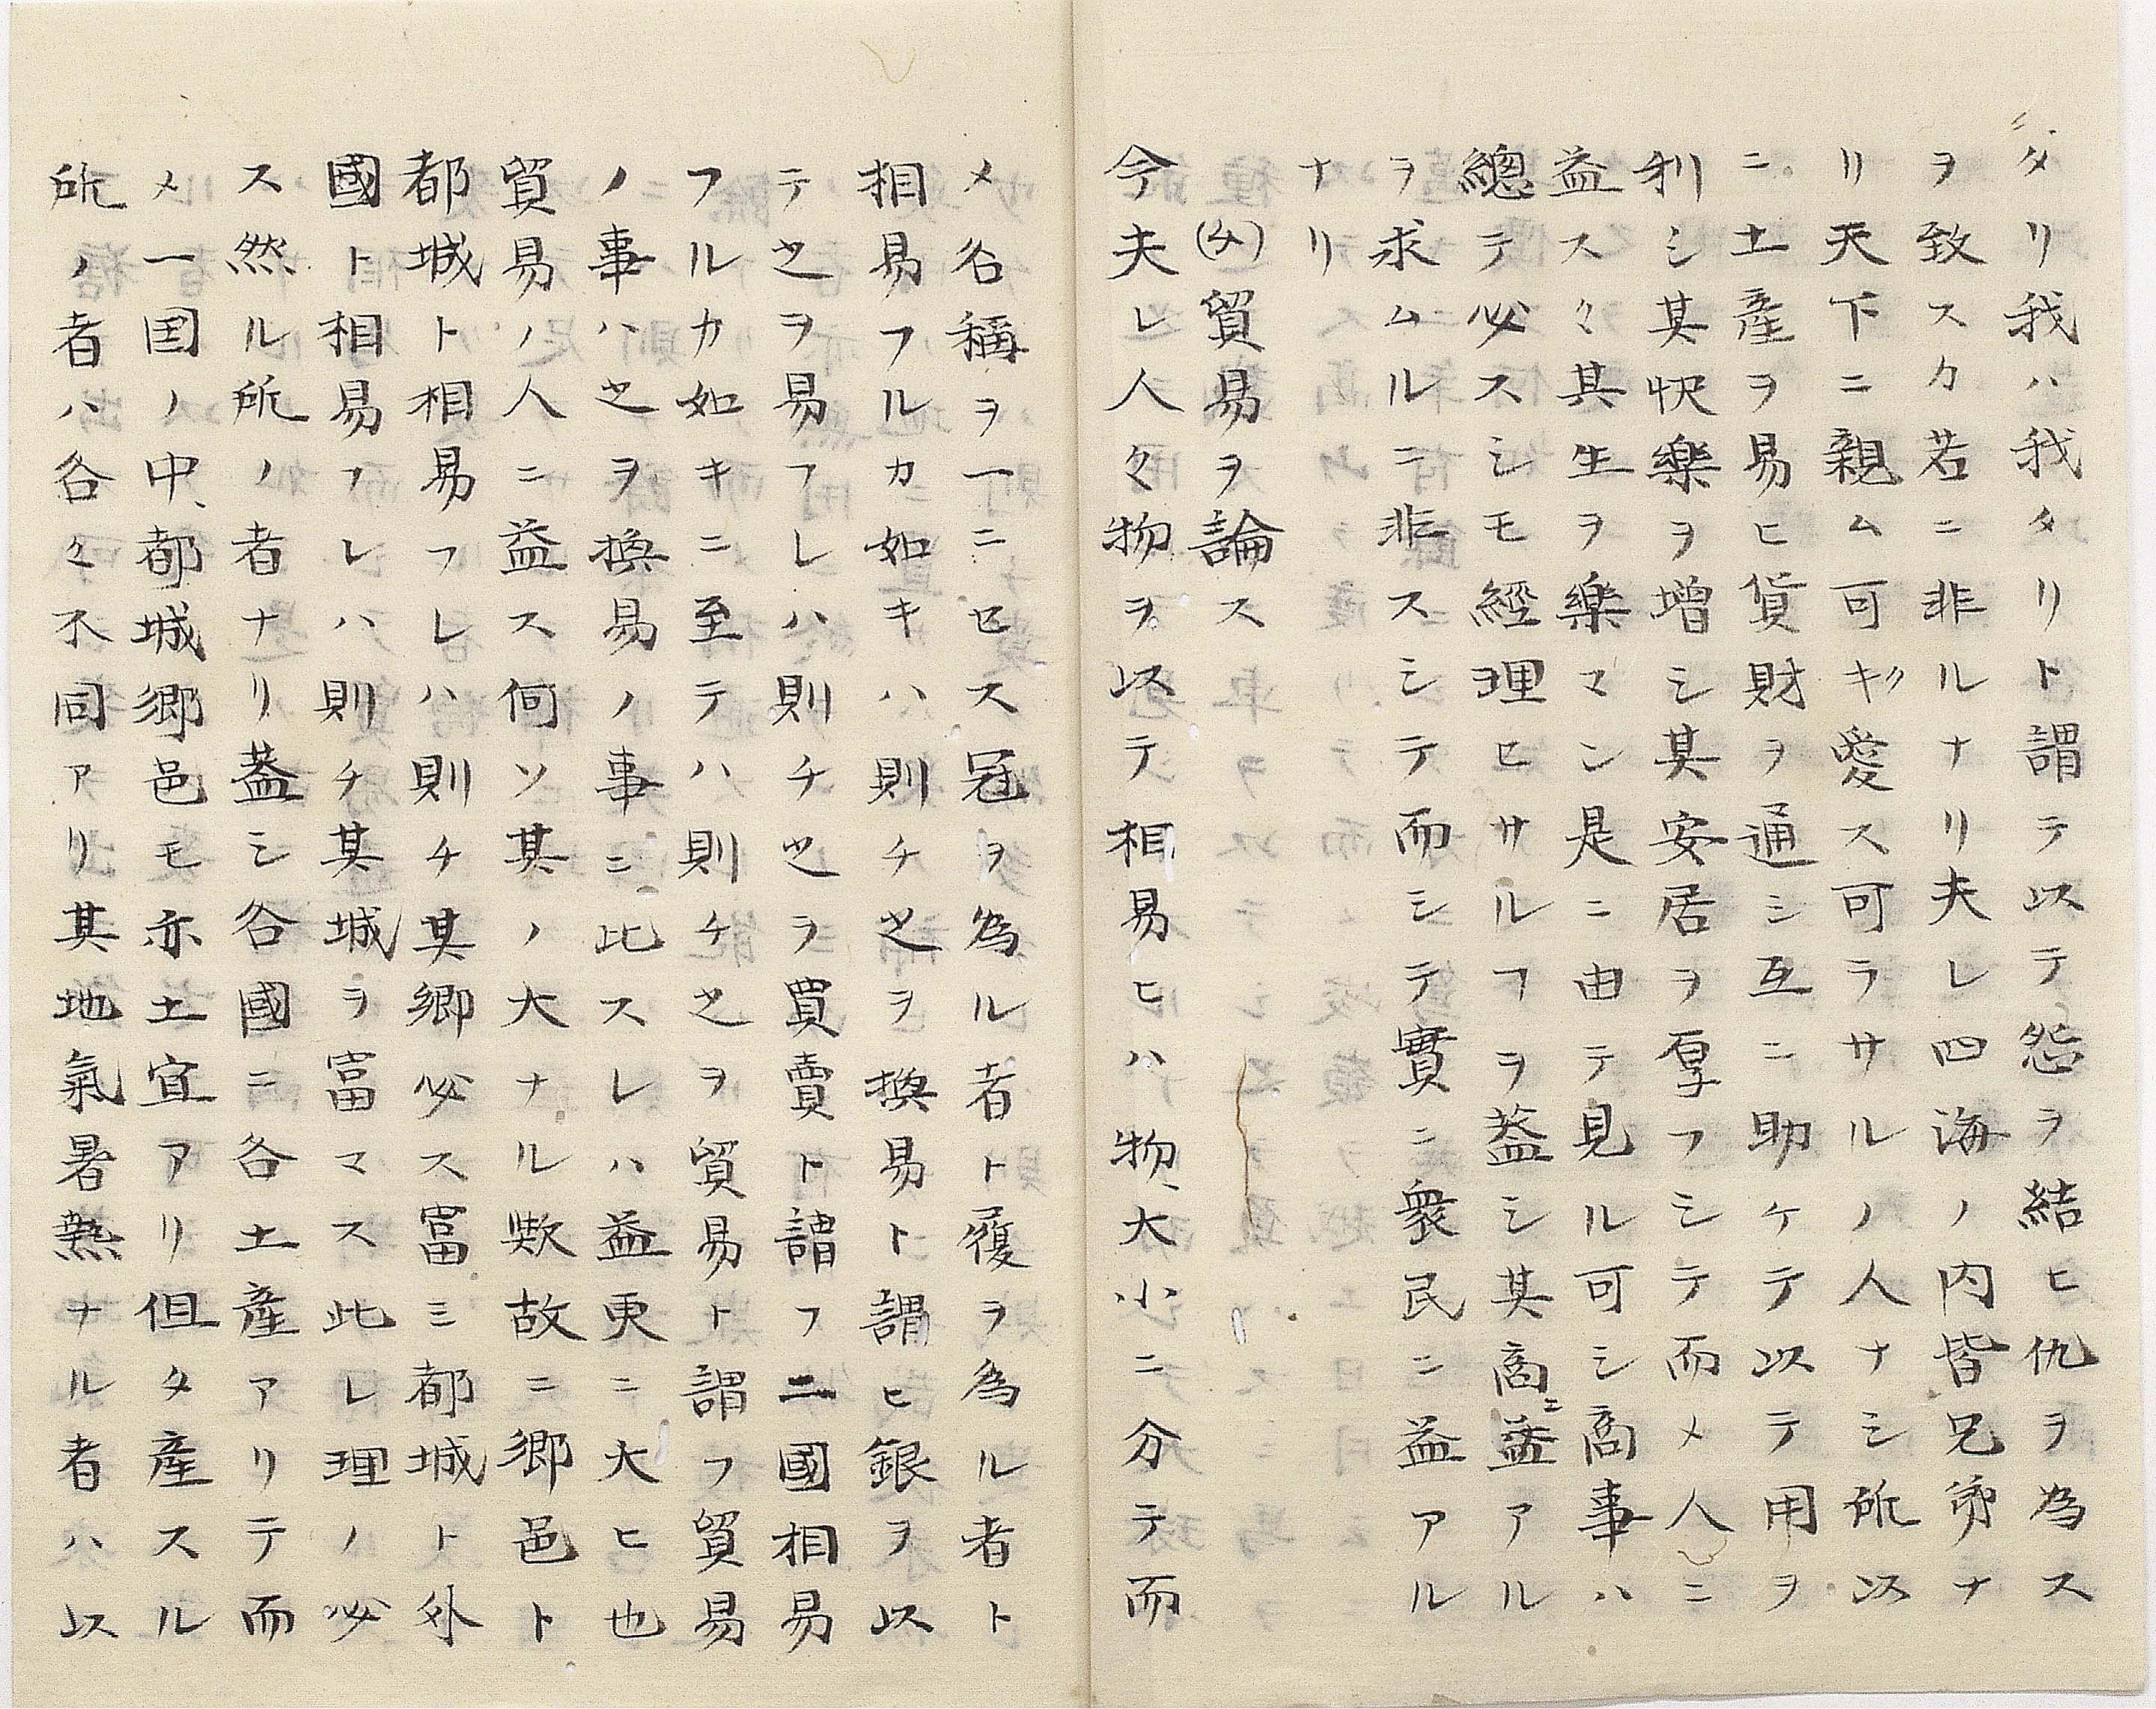 タリ我ハ我タリト謂テ以テ怨ヲ結ヒ仇ヲ為ス
ヲ致スカ若ニ非ルナリ夫レ四海ノ内皆兄弟ナ
リ天下ニ親ム可キク愛ス可ラサルノ人ナシ所以
ニ土産ヲ易ヒ貨財ヲ通シ互ニ助ケテ以テ用ヲ
利シ其快樂ヲ増シ其安居ヲ厚フシテ而メ人ニ
益ス々其生ヲ樂マン是ニ由テ見ル可シ商事ハ
總テ必スシモ經理セサルフヲ蓋シ其商ニ益アル
ヲ求ムルニ非スシテ而シテ實ニ衆民ニ益アル
ナリ
(4)貿易ヲ論ス
今夫レ人々物ヲ以テ相易ヒハ物、大小ニ分テ而
メ名稱ヲ一ニセス冠ヲ為ル者ト履ヲ為ル者ト
相易フルカ如キハ則チ之ヲ換易ト謂ヒ銀ヲ以
テ之ヲ易フレハ則チ之ヲ買賣ト謂フ二國相易
フルカ如キニ至テハ則チ之ヲ貿易ト謂フ貿易
ノ事ハ之ヲ換易ノ事ニ比スレハ益更ニ大ヒ也
貿易ノ人ニ益ス何ソ其ノ大ナル歟故ニ郷邑ト
都城ト相易フレハ則チ其郷必ス富ミ都城ト外
國ト相易フレハ則チ其城ヲ富マス此レ理ノ必
ス然ル所ノ者ナリ蓋シ各國ニ各土産アリテ而
メ一国ノ中、都城郷邑モ亦土宜アリ但タ産スル
所ノ者ハ各々不同アリ其地氣暑熱ナル者ハ以